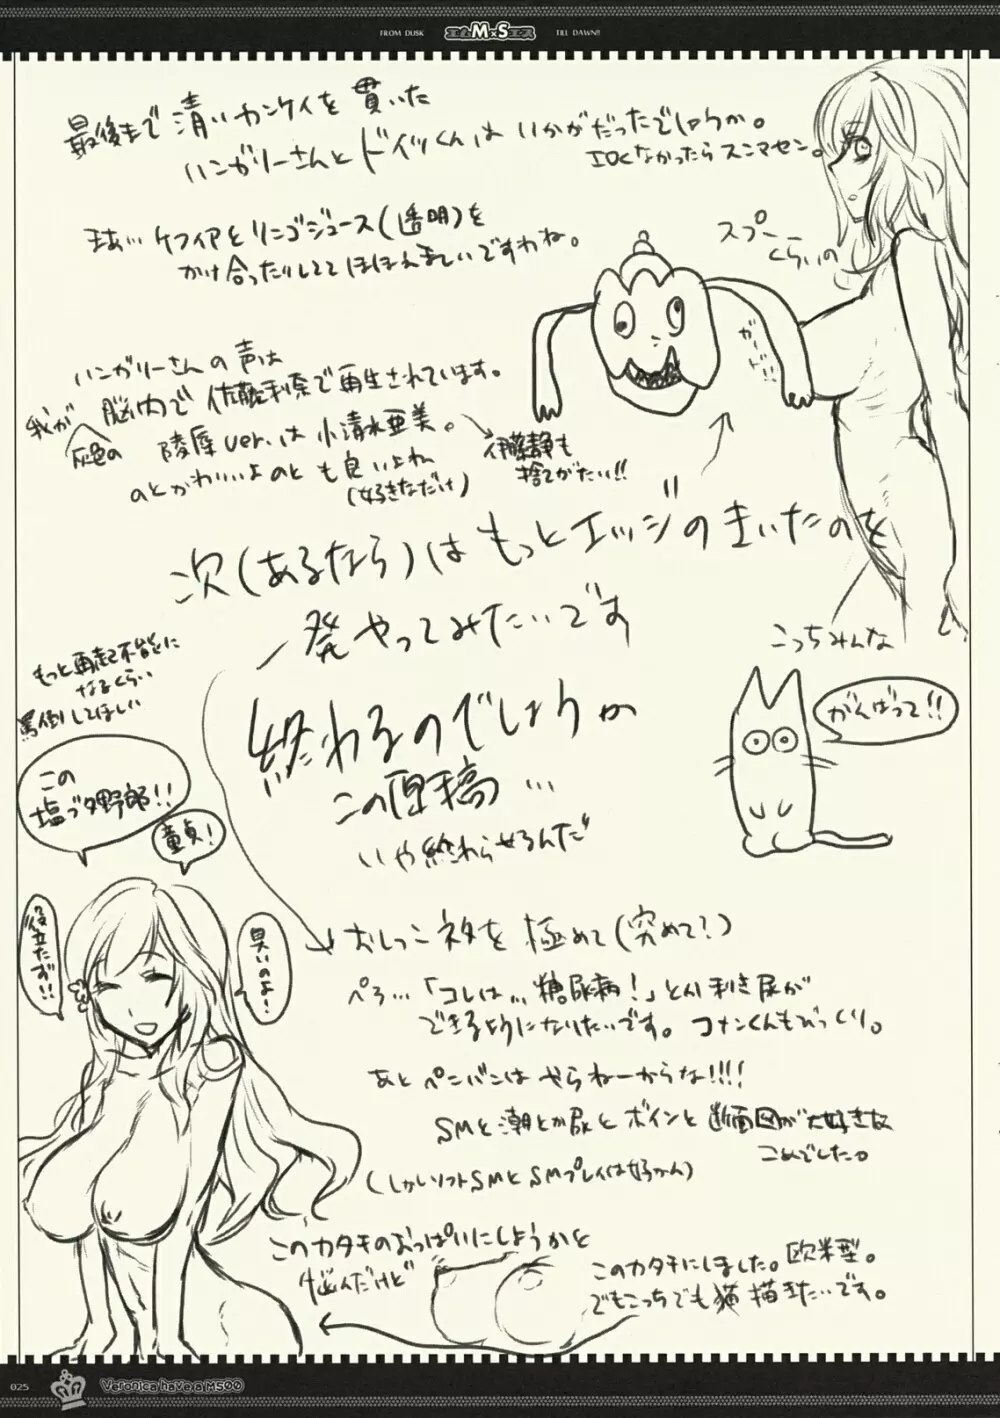 FROM DUSK
エムM×Sエス
TILL DAWN!!
最後まで清いカンケイを貫いた
ハンガリーさんとドイツくんはいかがだったでしょうか。
エロくなかったらスンマセン。
まあ…ケフィアとリンゴジュース(透明)を
かけ合ったりしててほほえましいですわね。
スプー
くらいの
ハンガリーさんの声は
我が
灰色の
脳内で佐藤利奈で再生されています。
陵辱ver.は小清水亜美。
のとかわいいよのとも良いよね
(好きなだけ)
伊藤静も
捨てがたい!!
次(あるなら)はもっとエッジのきいたのを
一発やってみたいです
もっと再起不能に
なるくらい
罵倒してほしい
終わるのでしょうか
この原稿…
いや終わらせるんだ
こっちみんな
がんばって!!
この
塩ブタ野郎!!
童貞!
役立たず!!
臭いのよー
おしっこネタを極めて(究めて?)
ペろ…「コレは…糖尿病!」とか利き尿が
できるようになりたいです。コナンくんもびっくり。
あとペンバンはやらねーからな!!!!
SMと潮とか尿とボインと断面図が大好きな
こめでした。
(しかしソフトSMとSMプレイは好かん)
このカタチのおっぱいにしようかを
悩んだけど
このカタチにしました。欧米型。
でもこっちでも猫描きたいです。
025
Veronica have a M500